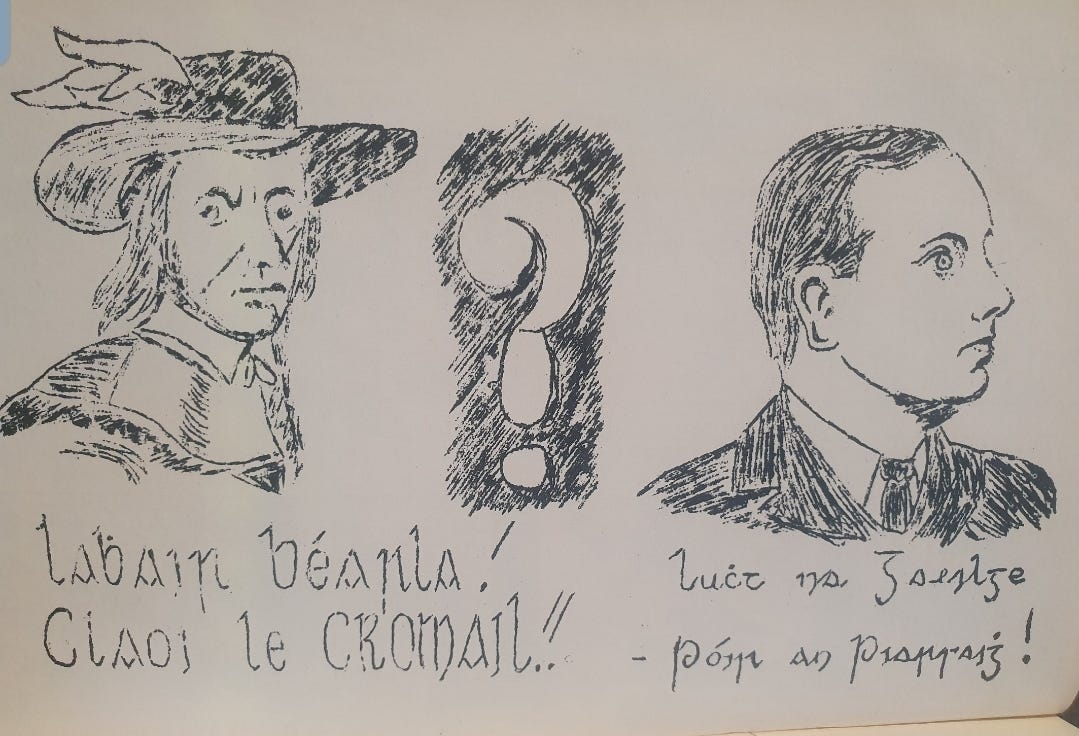 Laḃair Béarla!
Claoi le CROMAIL!!
Luċt na Gaeilge
- Póir an Piarsaiġ!